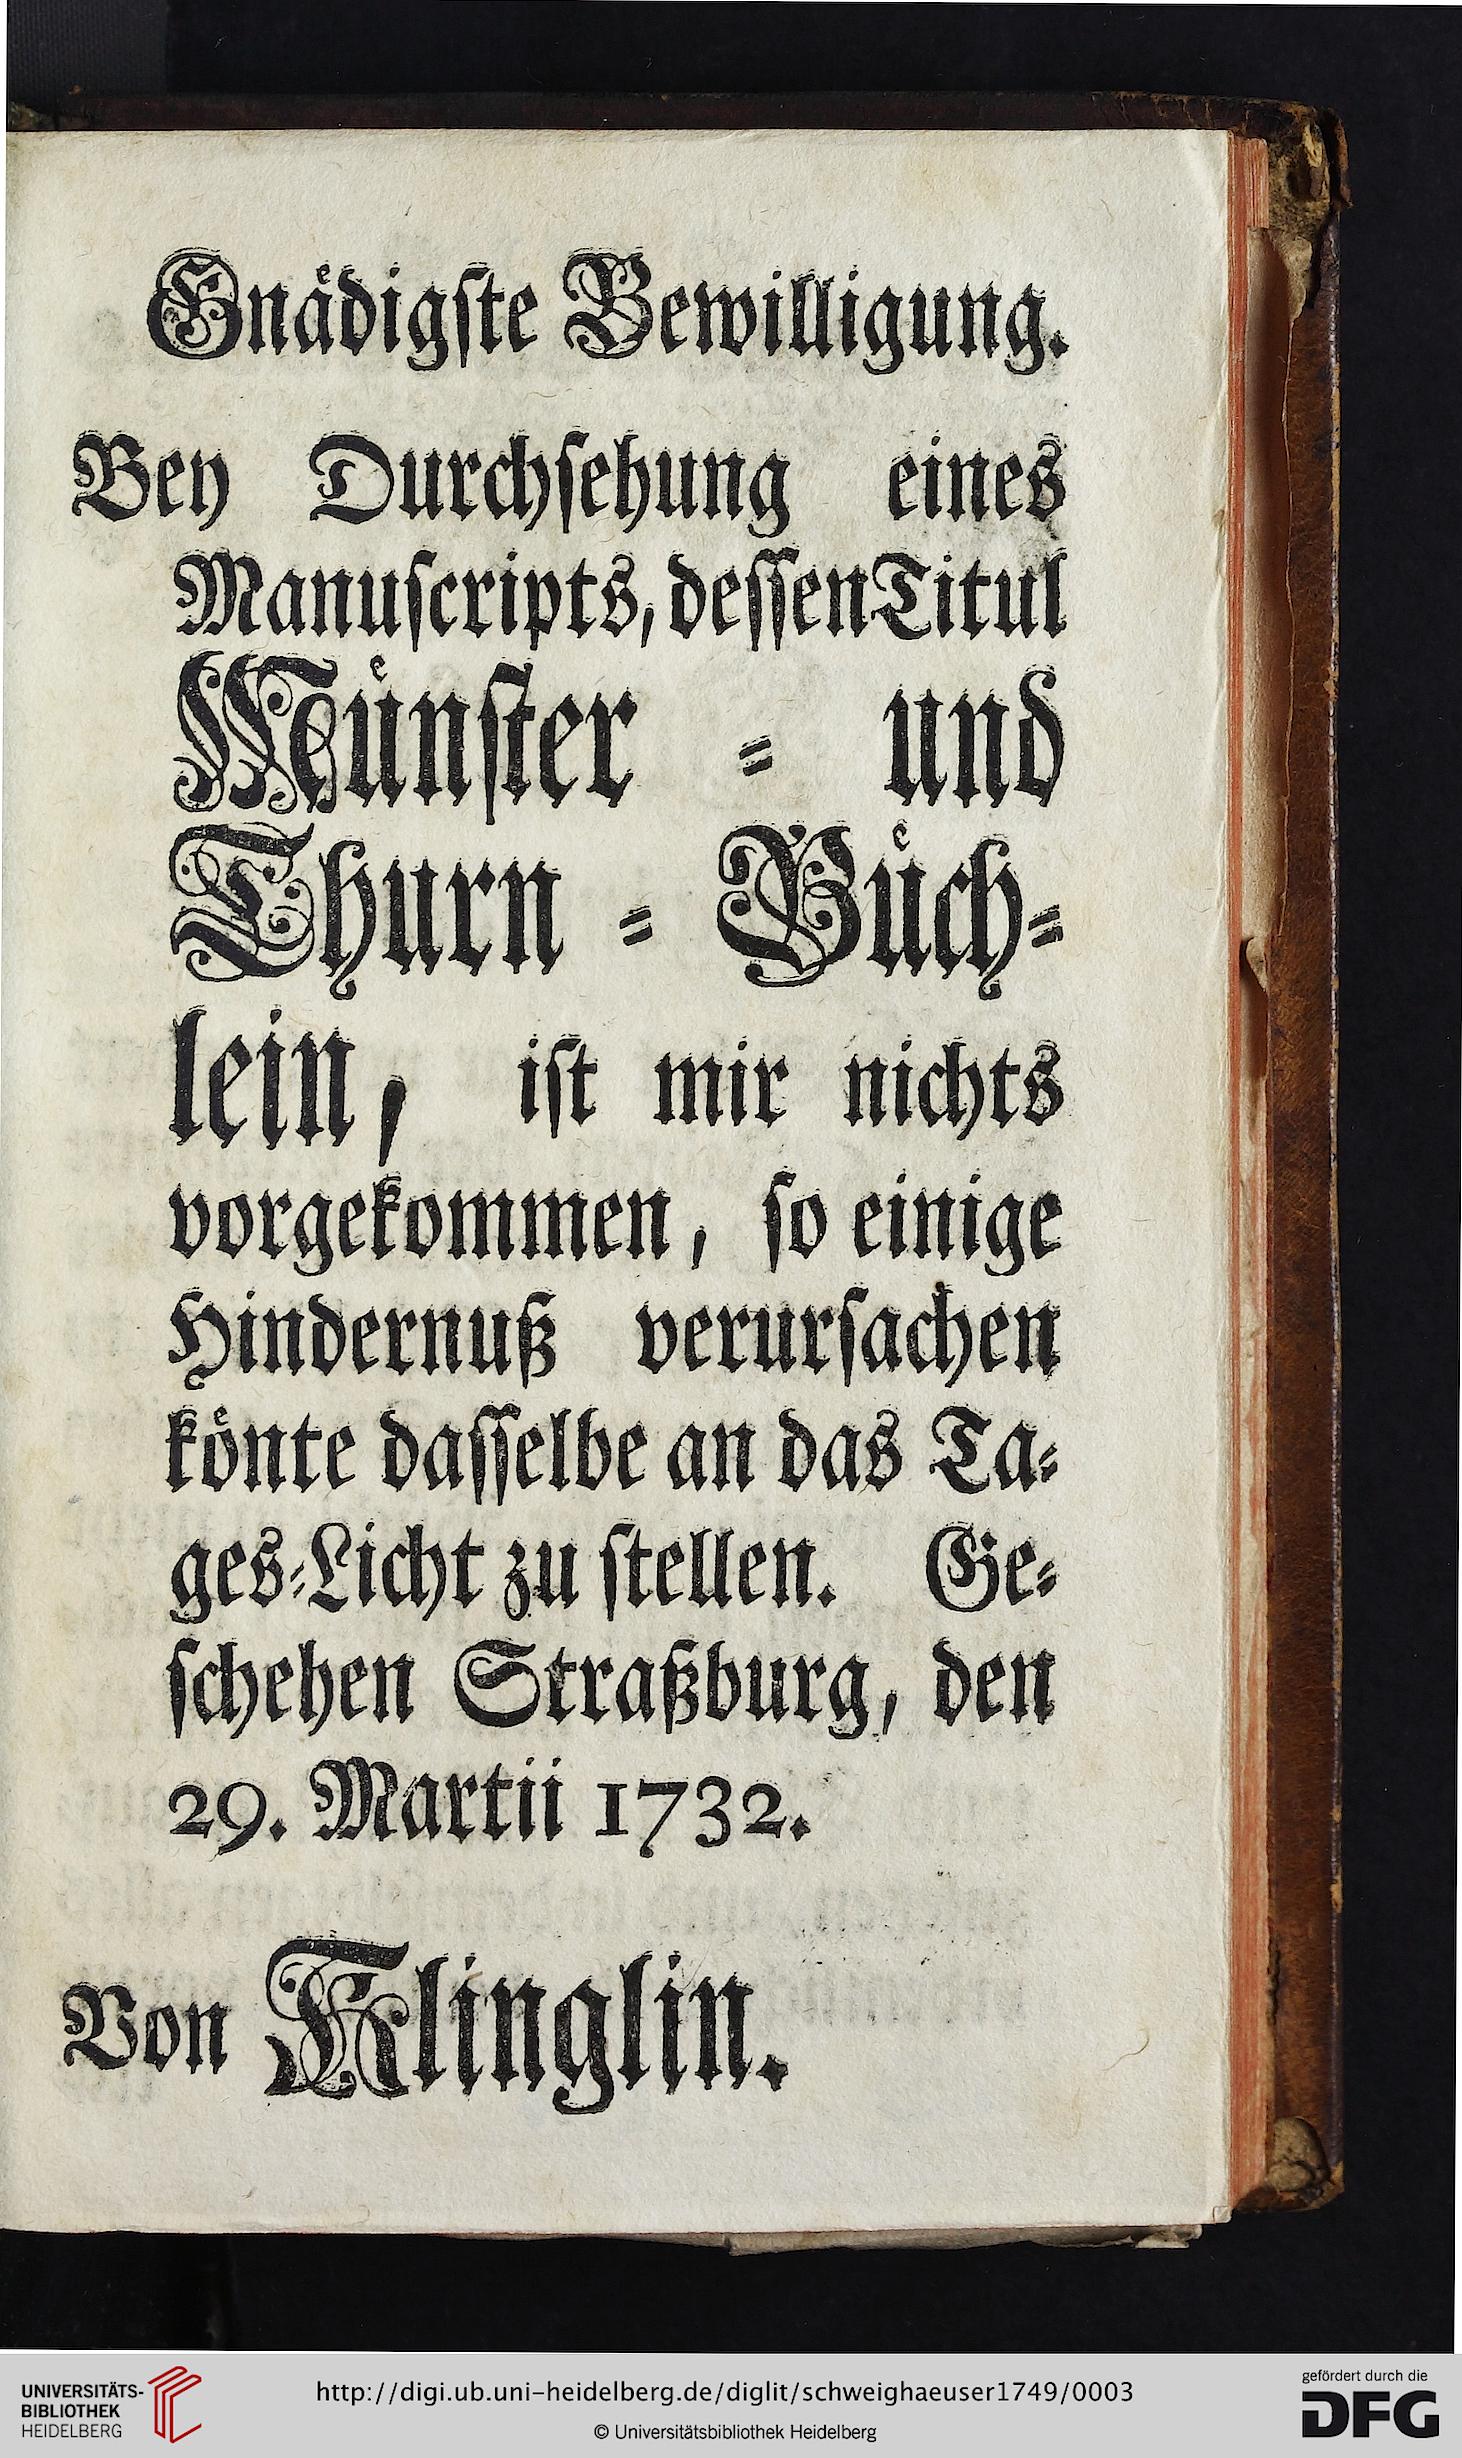 Gnaͤdigſte Bewilligung.
Bey Durchſehung eines
Manuſcripts, deſſen Titul
Muͤnſter⸗ und
Thurn⸗Buͤch⸗
lein, iſt mir nichts
vorgekommen, ſo einige
Hindernuß verurſachen
koͤnte daſſelbe an das Ta⸗
ges⸗Licht zu ſtellen. Ge⸗
ſchehen Straßburg, den
29. Martii 1732.
Von Klinglin.
UNIVERSITÄTS-
BIBLIOTHEK
HEIDELBERG
http://digi.ub.uni-heidelberg.de/diglit/schweighaeuser1749/0003
© Universitätsbibliothek Heidelberg
gefördert durch die
DFG